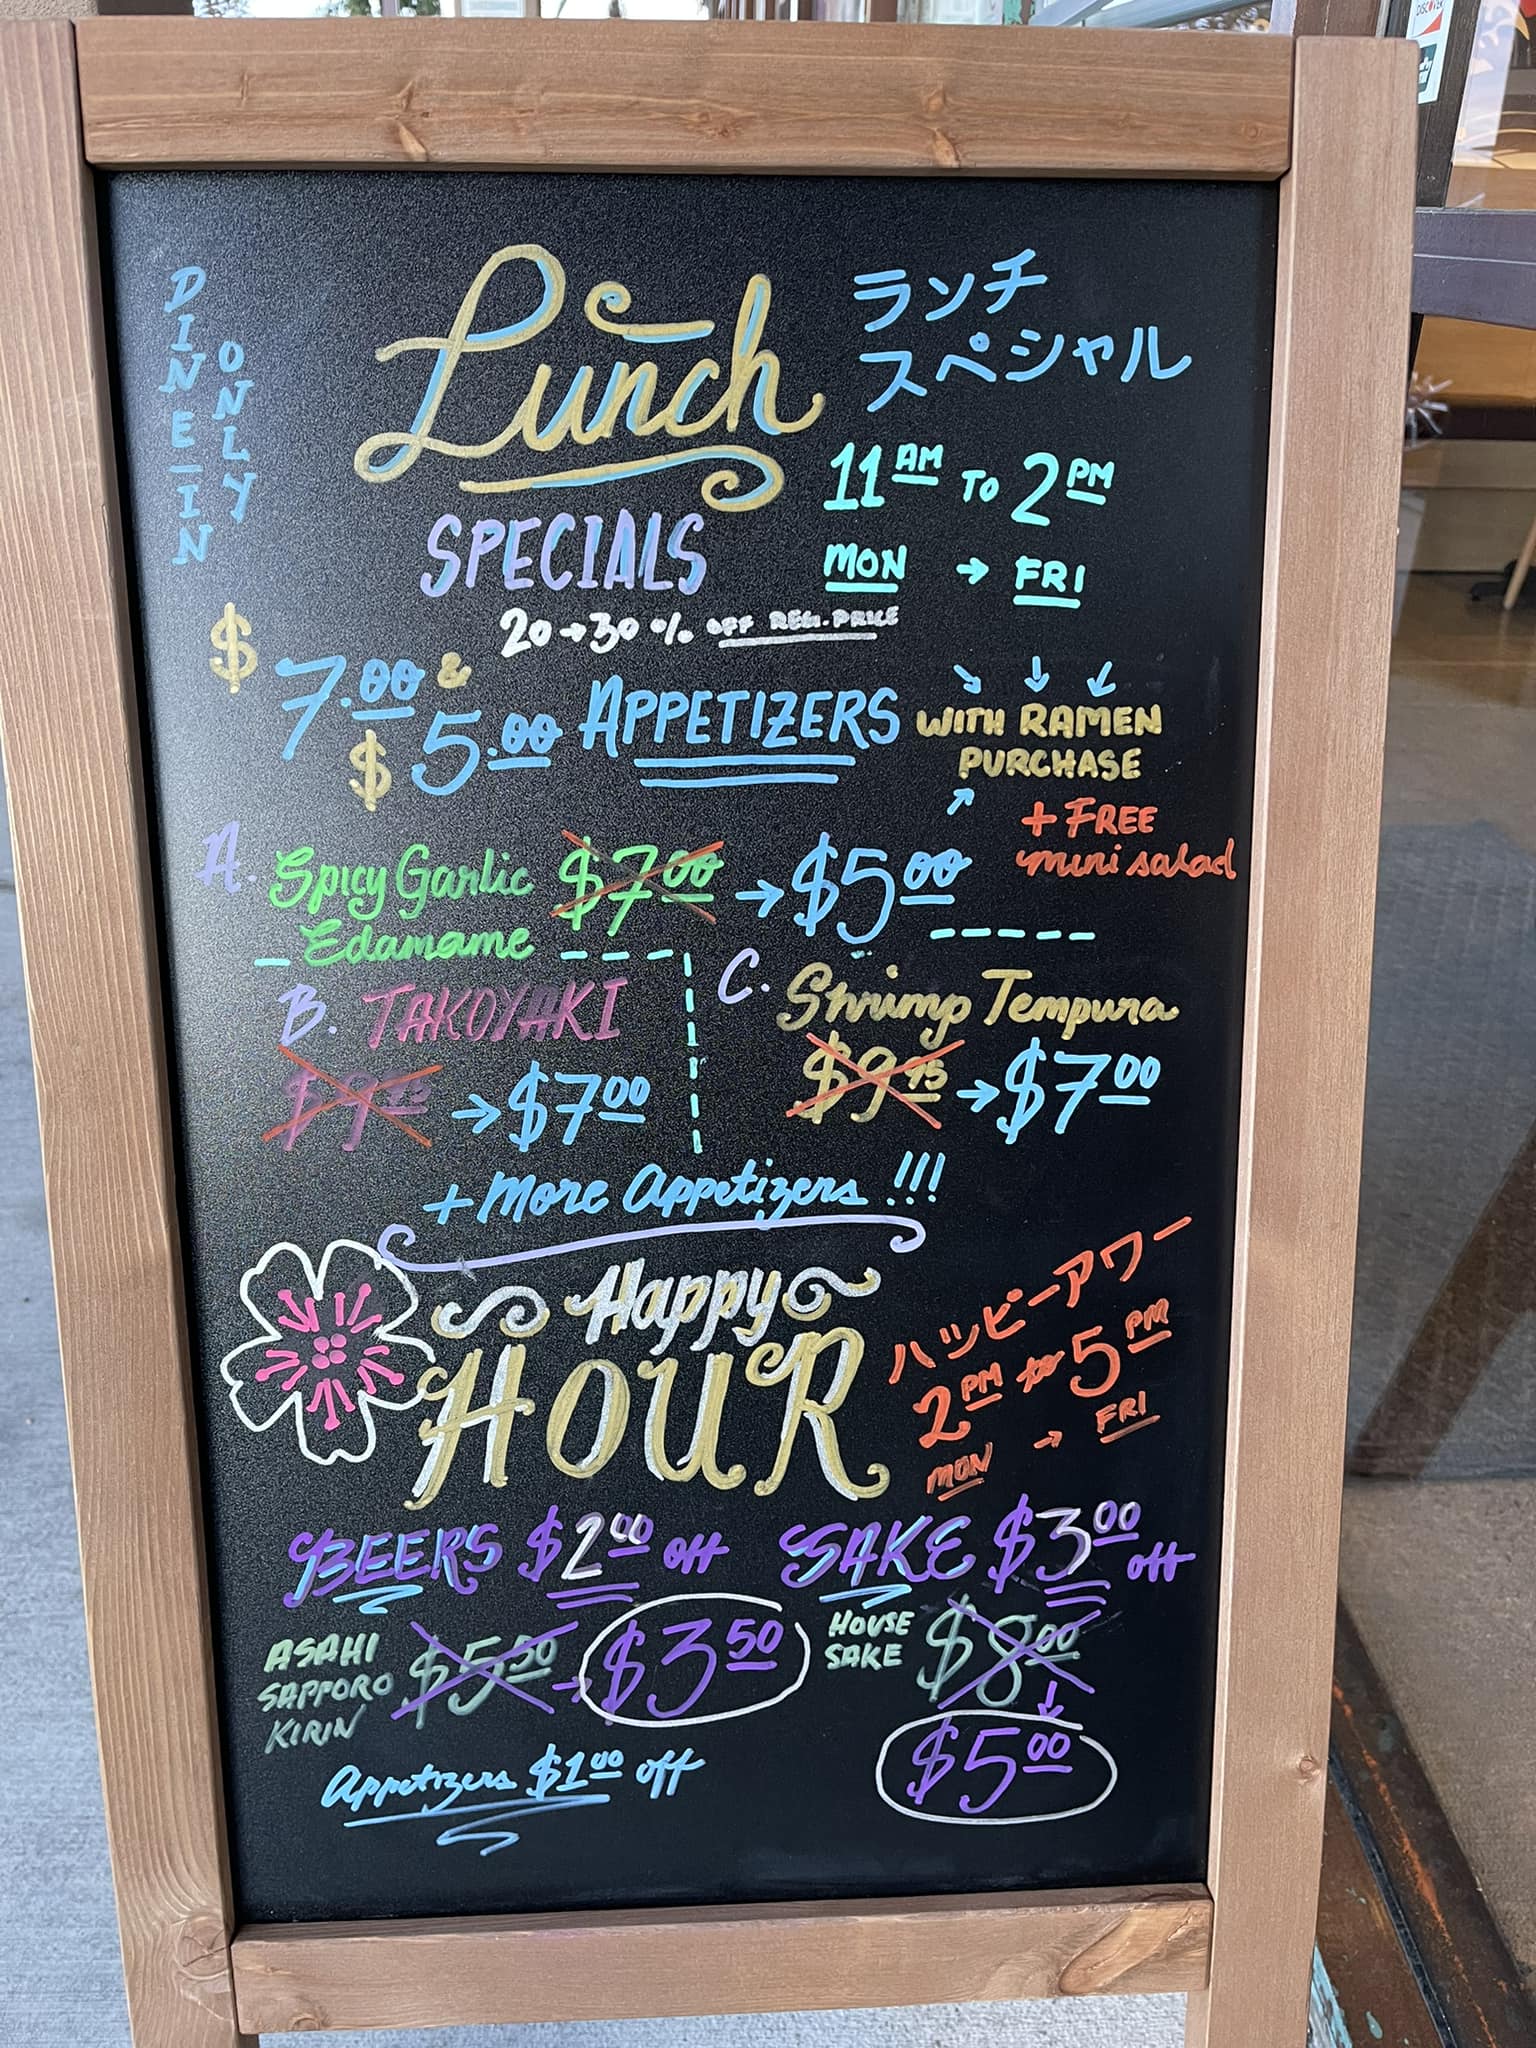 DINE-IN
ONLY
Lunch
SPECIALS
ランチ
スペシャル
11 AM TO 2 PM
MON → FRI
20→30% OFF REG. PRICE
$7.00 &
$5.00
APPETIZERS
WITH RAMEN
PURCHASE
+ FREE
mini salad
A. Spicy Garlic
Edamame
$7.00 → $5.00
B. TAKOYAKI
$9.95 → $7.00
C. Shrimp Tempura
$9.95 → $7.00
+ More Appetizers !!!
Happy
HOUR
ハッピーアワー
2 PM to 5 PM
MON → FRI
BEERS $2.00 off
ASAHI
SAPPORO
KIRIN
$5.50 → $3.50
Appetizers $1.00 off
SAKE $3.00 off
HOUSE
SAKE
$8.00
↓
$5.00
DISCOVER